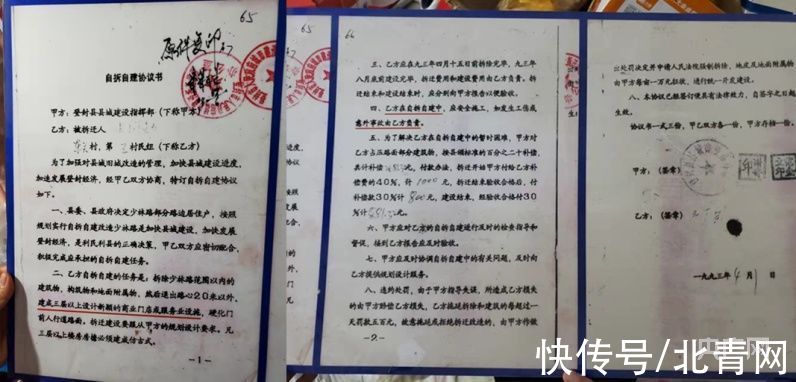 65
原件复印
自拆自理协议书
甲方：登封县县城建设指挥部（下称甲方）
乙方：被拆迁人
村，第 村民组（下称乙方）
为了加强对县城旧城改造的管理，加快县城建设进度，
加速发展登封经济，经甲乙双方协商，特订自拆自建协议
如下。
一、县委、县政府决定少林路部分路边居住户，按照
规划实行自拆自建改造少林路是加快县城建设，加快发展
登封经济，是利民利县的正确决策，甲乙双方应密切配合，
积极完成应承担的自拆自建任务。
二、乙方自拆自建的任务是：拆除少林路范围以内的
建筑物，构筑物和地面附属物，然后退出路心20米以外，
建成三层以上设计新颖的商业门店或服务业设施，硬化门
前人行道路面。拆迁建设要服从甲方的规划设计要求。凡
三层以上楼房房檐必须建成仿古式。
—1—
65
66
三、乙方应在九三年四月十五日前拆除完毕，九三年
八月底前建设完毕，拆迁费用和建设费用由乙方负责。拆
迁结束和建设结束时，应分别向甲方报告以便验收。
四、乙方在自拆自建中，应安全施工，如发生工伤或
意外事故由乙方负责。
五、为了解决乙方在自拆自建中的暂时困难，甲方对
乙方占压路面部分建筑物，按县颁标准的百分之二十补偿
共计补偿 元，付款办法，拆迁开始甲方付给乙方补
偿费的40%，计 元，拆迁结束验收合格后，付
补偿款30%计 元，建设结束，经验收合格付30
%计 元。
六、甲方应对乙方的自拆自建进行及时的检查指导和
督促，接到乙方报告应及时验收。
七、甲方应及时协调自拆自建中的有关问题，及时向
乙方提供规划设计服务。
八、违约处罚，由于甲方指导失误，所造成乙方损失
的由甲方赔偿乙方损失，乙方拖延拆除和建设的每超过一
天罚款五百元，故意拖延或拒绝拆迁改造的，由甲方作做
—2—
出处罚决定并申请人民法院强制拆除，地皮及地面附属物
由甲方每亩一万元征收，进行统一开发建设。
八、本协议已经签订便具有法律效力，自签字之日起
生效。
协议书一式三份，甲乙双方各一份，甲方存档一份。
甲方：（签章）
乙方：（签章）
一九九三年4月1日
央广网
快传号/北青网